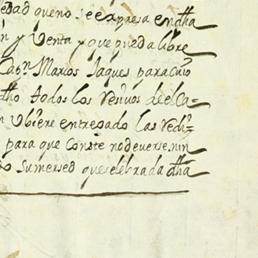 edad que no se expresa en dha
n y Venta y que queda libre
Capn. Marios Jaques para cuio
dho todos los reduos de el Ca-
n Ubiere entregado las redi-
para que Conste no deverse nin
so sumersed que selebrada dha